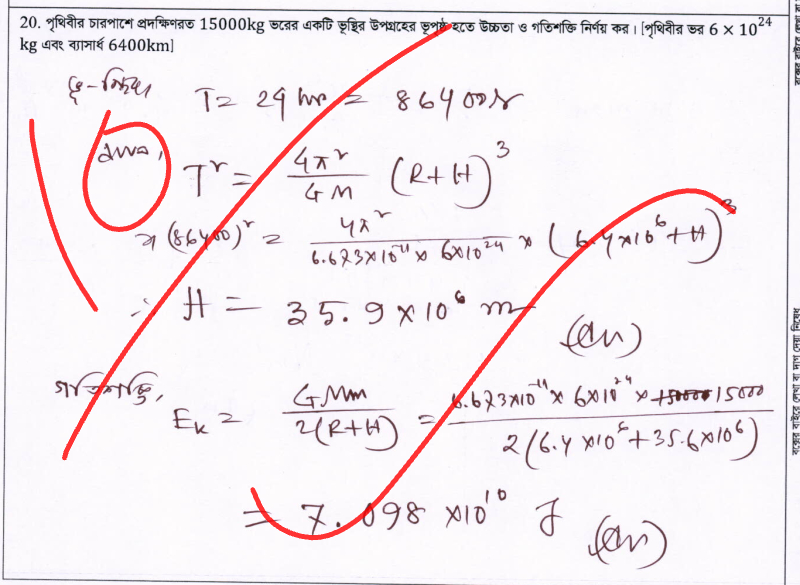 20. পৃথিবীর চারপাশে প্রদক্ষিণরত 15000kg ভরের একটি ভূস্থির উপগ্রহের ভূপৃষ্ঠ হতে উচ্চতা ও গতিশক্তি নির্ণয় কর। [পৃথিবীর ভর 6 × 10²⁴
kg এবং ব্যাসার্ধ 6400km]
T = 24 hr = 86400s
T² = 4π²/GM (R+H)³
⇒ (86400)² = 4π²/(6.673×10⁻¹¹ × 6×10²⁴) × (6.4×10⁶ + H)³
∴ H = 35.9 × 10⁶ m
(An)
গতিশক্তি,
E_k = GMm/2(R+H) = (6.673×10⁻¹¹ × 6×10²⁴ × 15000)/2(6.4×10⁶ + 35.6×10⁶)
= 7.098 × 10¹⁰ J (An)